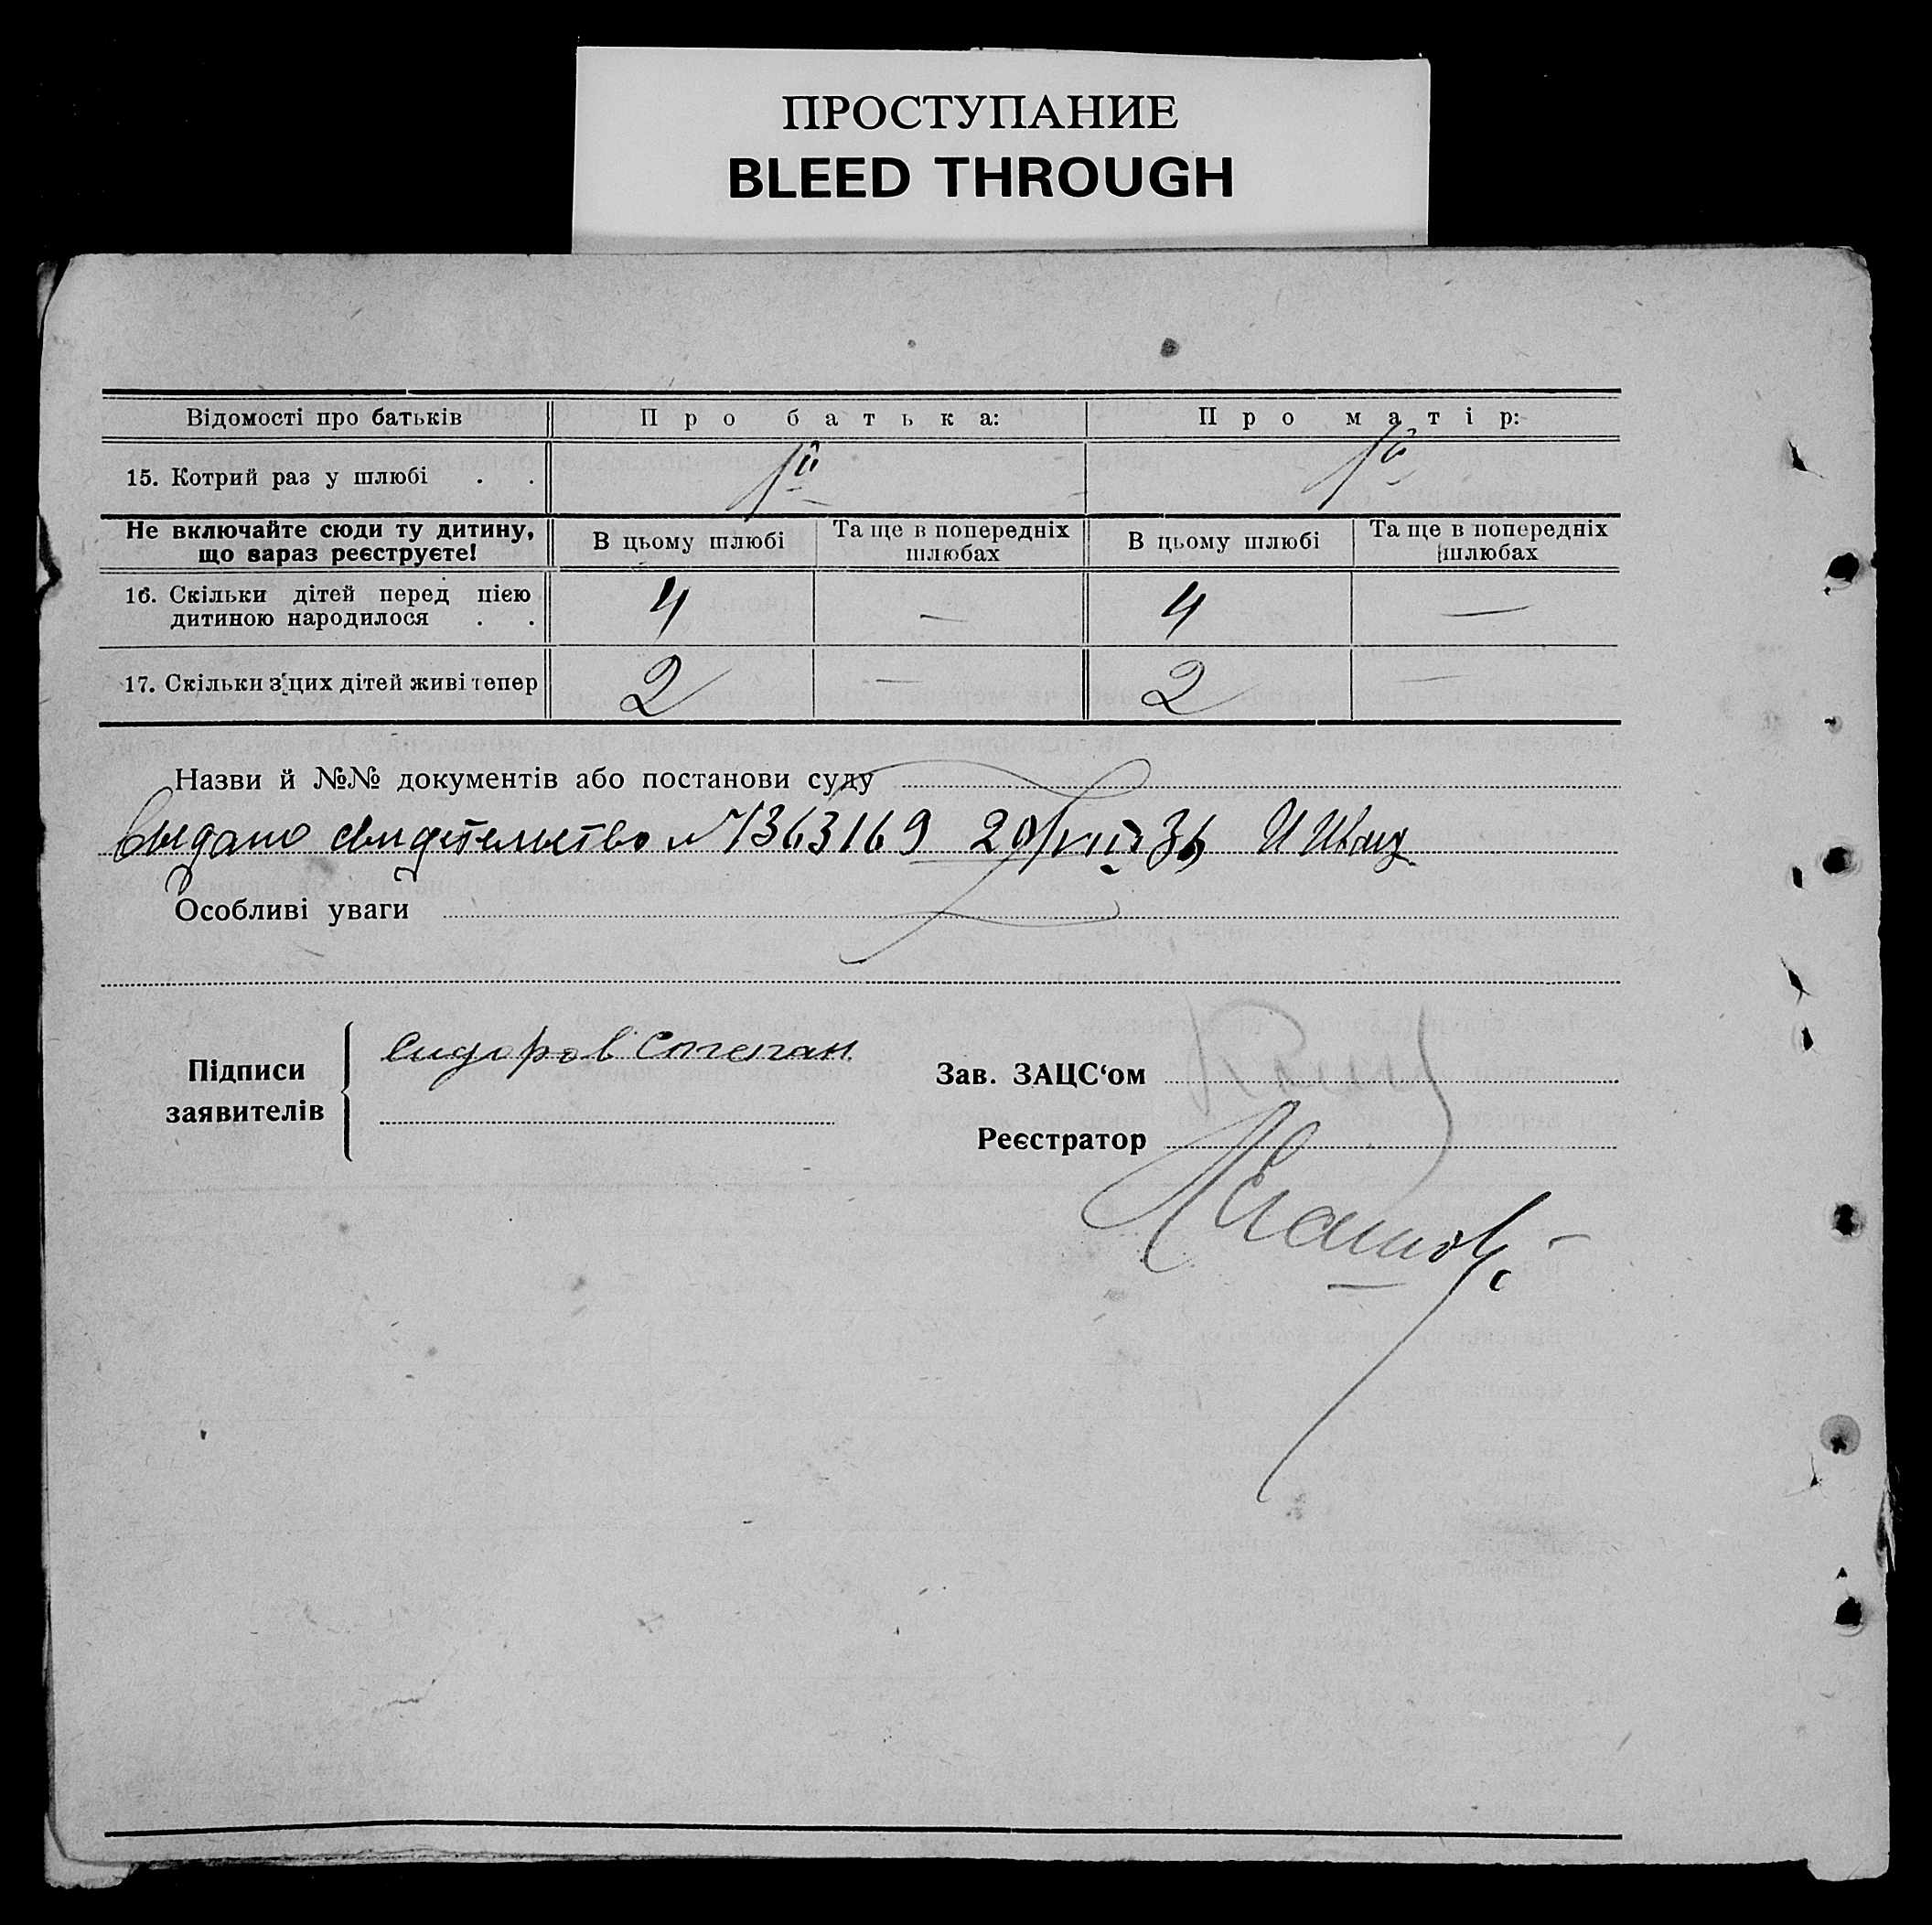 ПРОСТУПАНИЕ
BLEED THROUGH
Відомості про батьків Про батька: Про матір:
15. Котрий раз у шлюбі . . 1й 1й
Не включайте сюди ту дитину, що зараз реєструєте! В цьому шлюбі Та ще в попередніх шлюбах В цьому шлюбі Та ще в попередніх шлюбах
16. Скільки дітей перед цією дитиною народилося . . 4 — 4 —
17. Скільки з цих дітей живі тепер 2 — 2 —
Назви й №№ документів або постанови суду
Выдано свидетельство № 1363169 20/VIII 36
Особливі уваги
Підписи заявителів
Сидоров Степан
Зав. ЗАЦС‘ом
Реєстратор